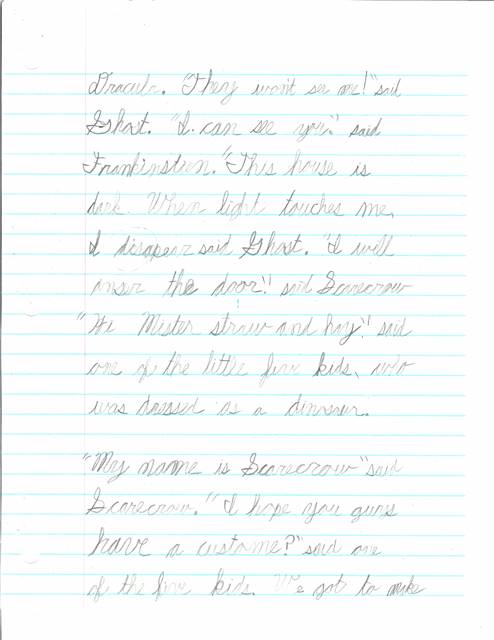 Dracula. "They won't see me!" said
Ghost. "I can see you." said
Frankinstien. "This house is
dark. When light touches me,
I disapear said Ghost. "I will
anser the door!" said Scarecrow
"Hi Mister straw and hay!" said
one of the little five kids, who
was dressed as a dinosaur.
"My name is Scarecrow" said
Scarecrow. "I hope you guys
have a custome?" said one
of the five kids. We got to make